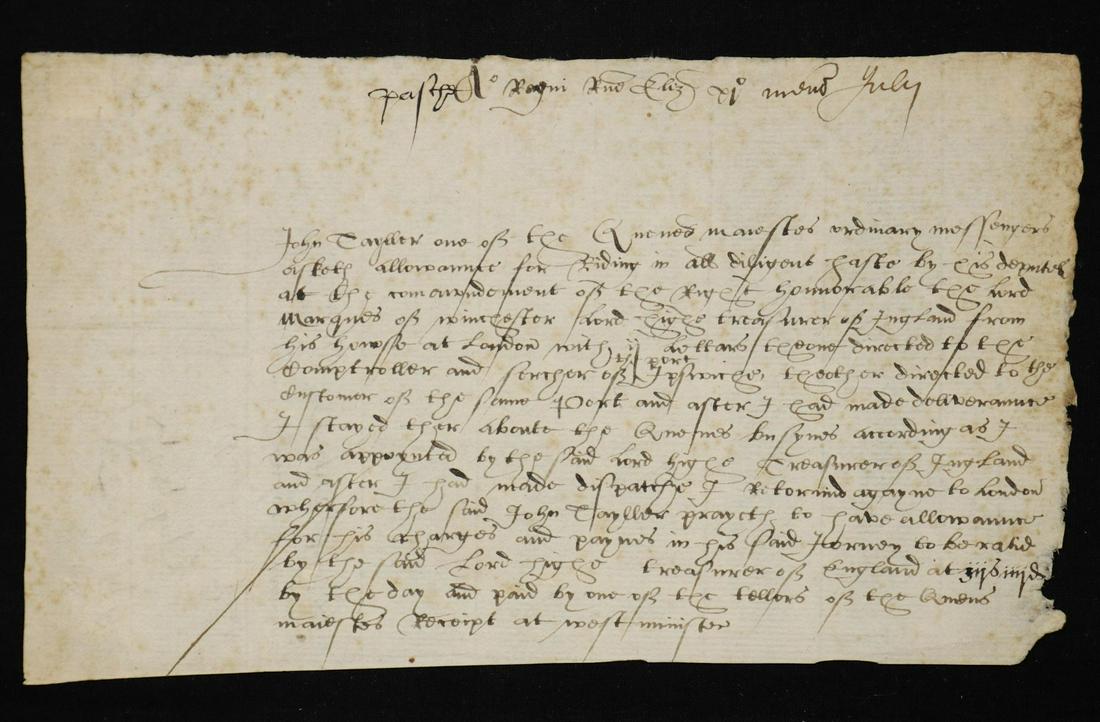 pasch A° Regni Rne Eliz xj° mens July
John Tayller one off the Quenes maiestes ordinary messengers
asketh allowaunce for Riding in all diligent haste by his deputeh
at the comaundement off the Right honnorable the lord
Marques off winchester lord highe treasurer off Ingland from
his howse at london with ij lettars theone directed to the
the port
Comptroller and sercher off Ipswiche, theother directed to the
Customer off the same Port and after I had made deliveraunce
I stayed ther aboute the Quenes busynes according as I
was appoynted by the said lord highe Treasurer off Ingland
and after I had made dispatche I Retornid agayne to london
wherfore the said John Tayller prayeth to have allowaunce
for his Charges and paynes in his said Jorney to be ratid
by the said Lord highe treasurer off England at iijs iiijd
by the day and paid by one off the tellers off the Quens
maiestes Receipt at westminster